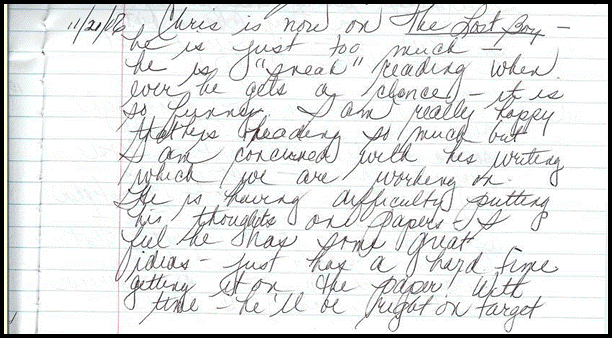 11/21/06 Chris is now on The Lost Boy -
he is just too much -
he is "sneak" reading when
ever he gets a chance - it is
so funny. I am really happy
that he's reading so much but
I am concerned with his writing
which we are working on.
He is having difficulty putting
his thoughts on papers - I
feel he has some great
ideas - just has a hard time
getting it on the paper! With
time - he'll be right on target